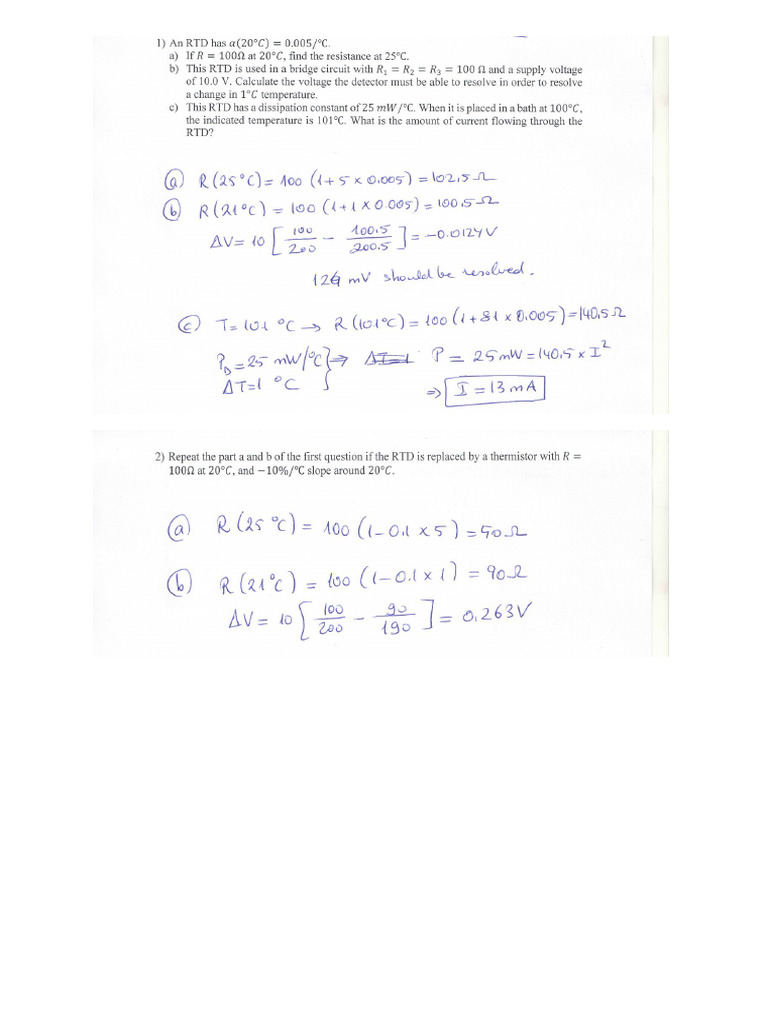 1) An RTD has α(20°C) = 0.005/°C.
a) If R = 100Ω at 20°C, find the resistance at 25°C.
b) This RTD is used in a bridge circuit with R₁ = R₂ = R₃ = 100 Ω and a supply voltage
of 10.0 V. Calculate the voltage the detector must be able to resolve in order to resolve
a change in 1°C temperature.
c) This RTD has a dissipation constant of 25 mW/°C. When it is placed in a bath at 100°C,
the indicated temperature is 101°C. What is the amount of current flowing through the
RTD?
ⓐ R(25°C) = 100 (1+5 × 0.005) = 102,5 Ω
ⓑ R(21°C) = 100 (1+1 × 0.005) = 100.5 Ω
ΔV = 10 [100/200 − 100.5/200.5] = −0.0124 V
mV should be resolved.
ⓒ T = 101 °C → R(101°C) = 100 (1+81 × 0.005) = 140,5 Ω
P_D = 25 mW/°C } ⇒ P = 25 mW = 140,5 × I²
ΔT = 1 °C ⇒ I = 13 mA
2) Repeat the part a and b of the first question if the RTD is replaced by a thermistor with R =
100Ω at 20°C, and −10%/°C slope around 20°C.
ⓐ R(25 °C) = 100 (1−0.1 × 5) = 50 Ω
ⓑ R(21°C) = 100 (1−0.1 × 1) = 90 Ω
ΔV = 10 [100/200 − 90/190] = 0,263 V